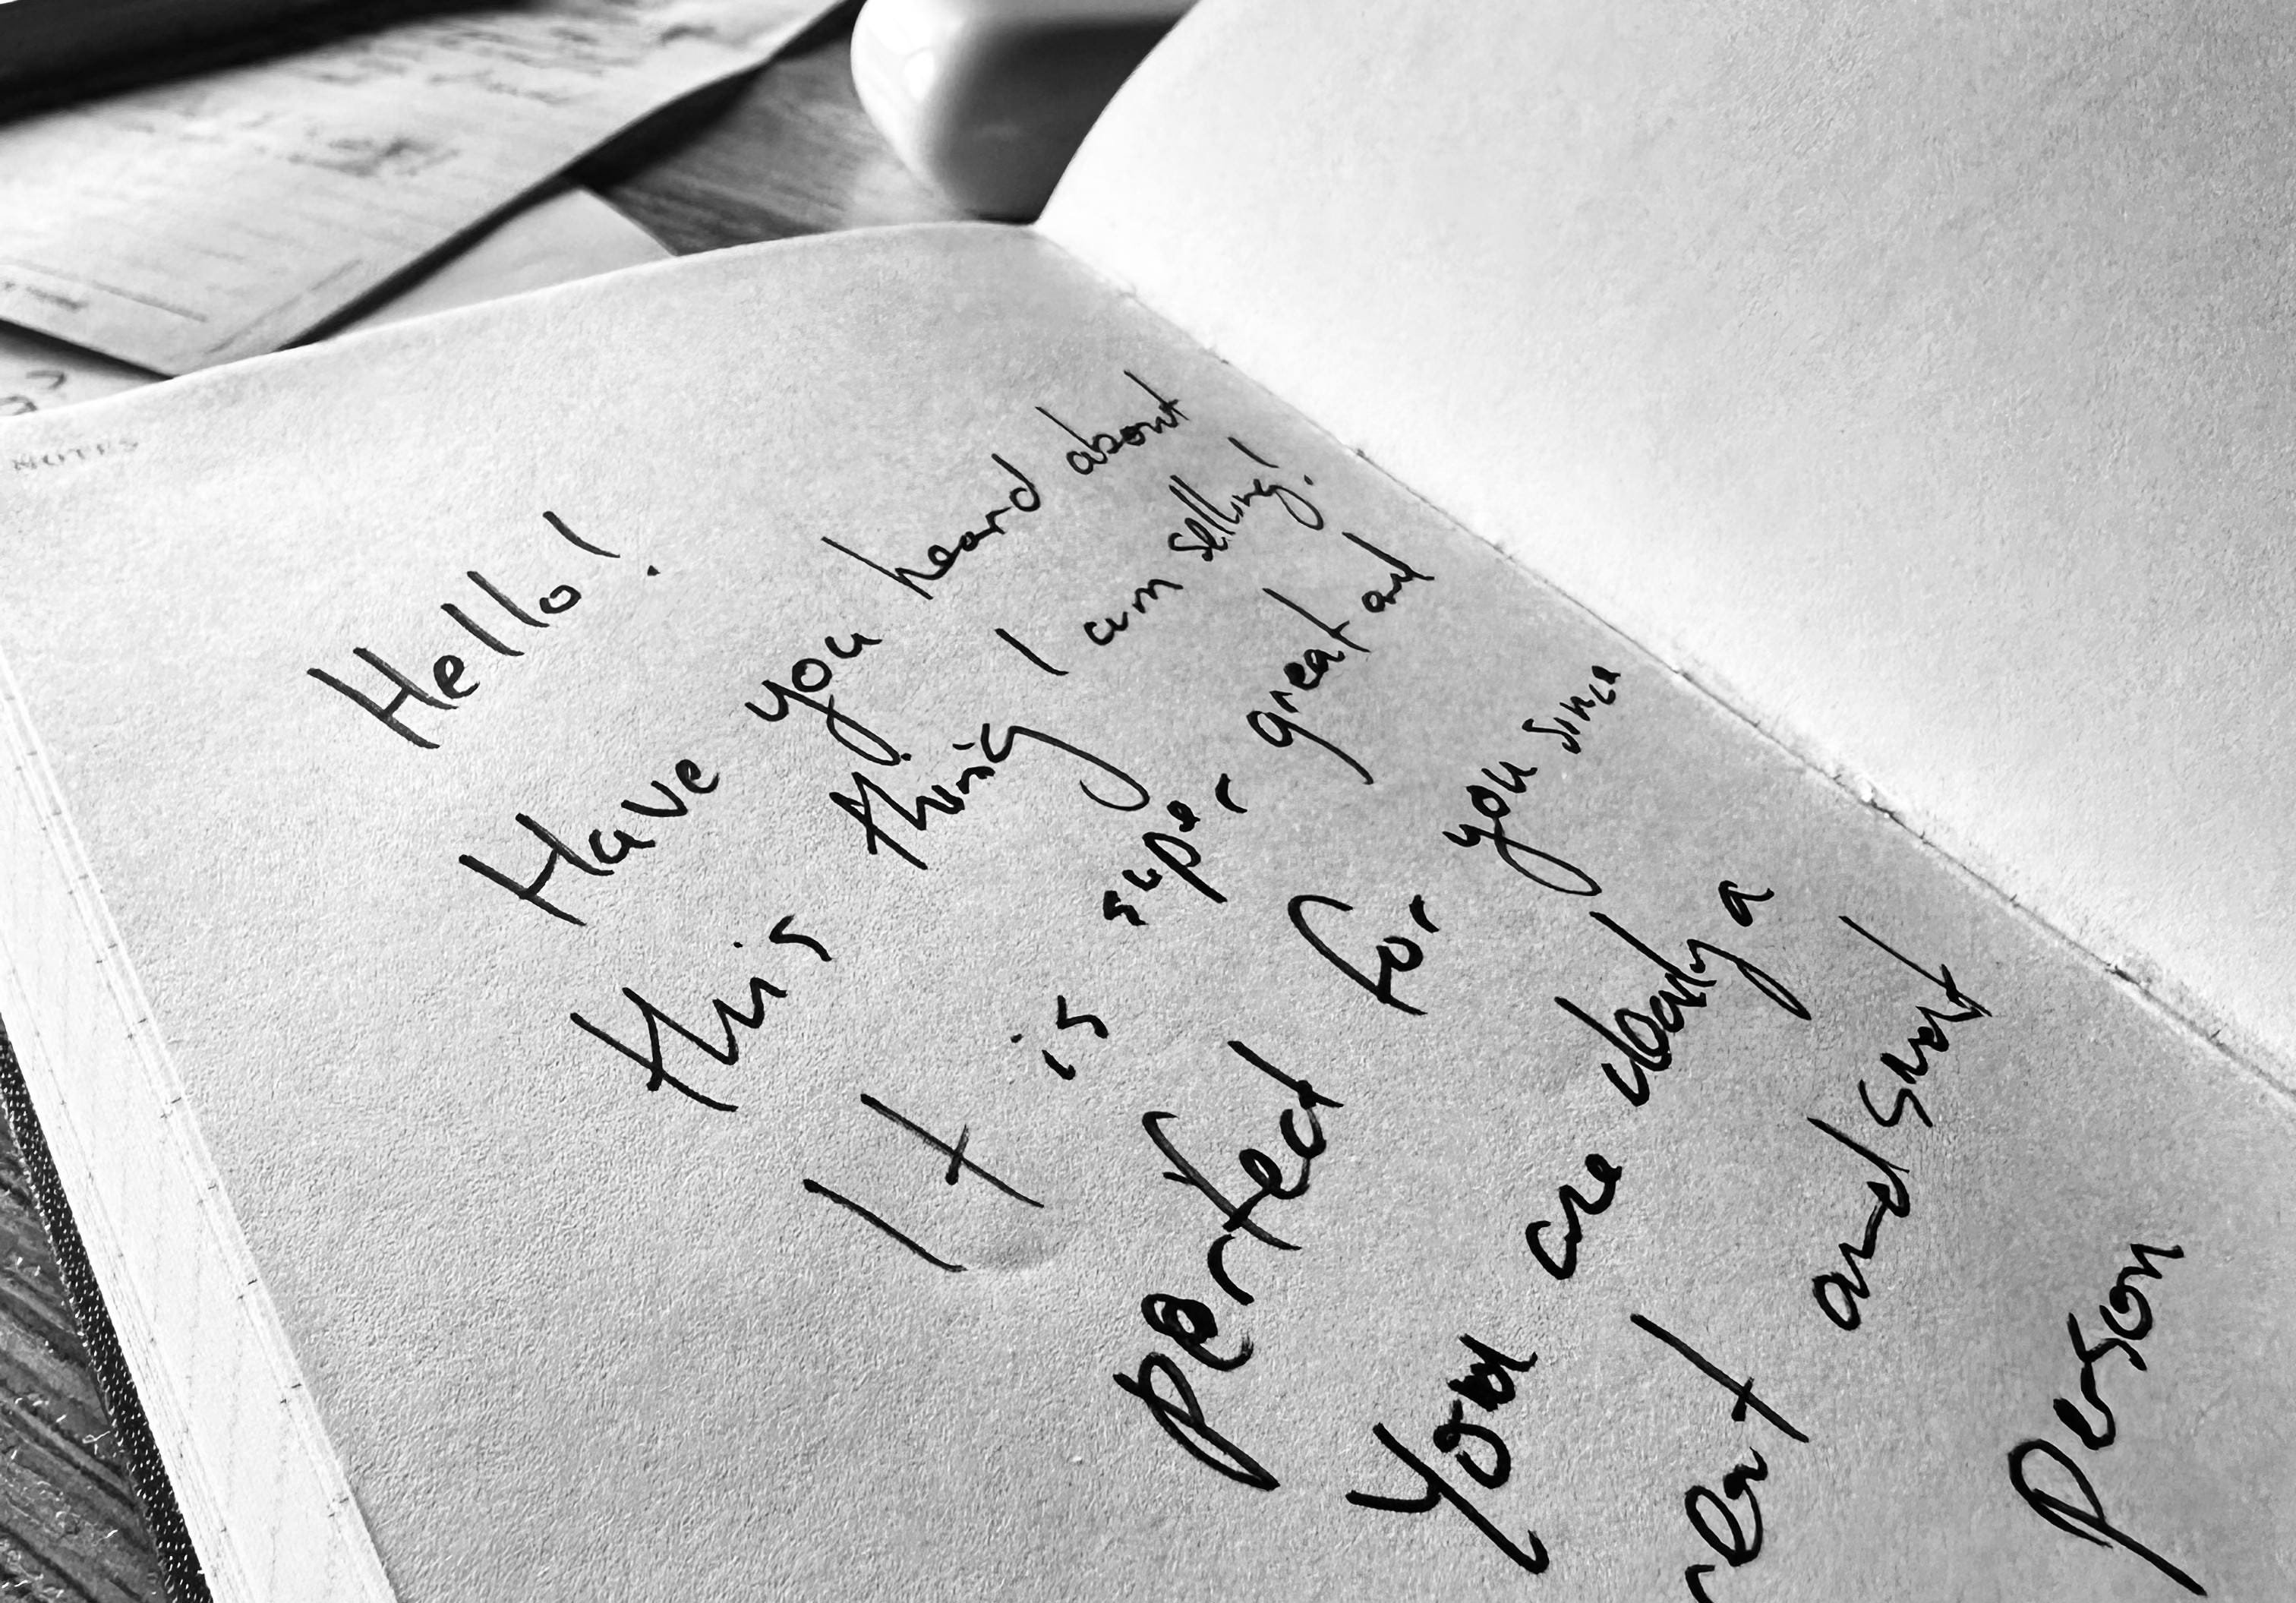 NOTES
Hello!
Have you heard about
this thing I am selling!
It is super great and
perfect for you since
You are clearly a
reat and smart
person